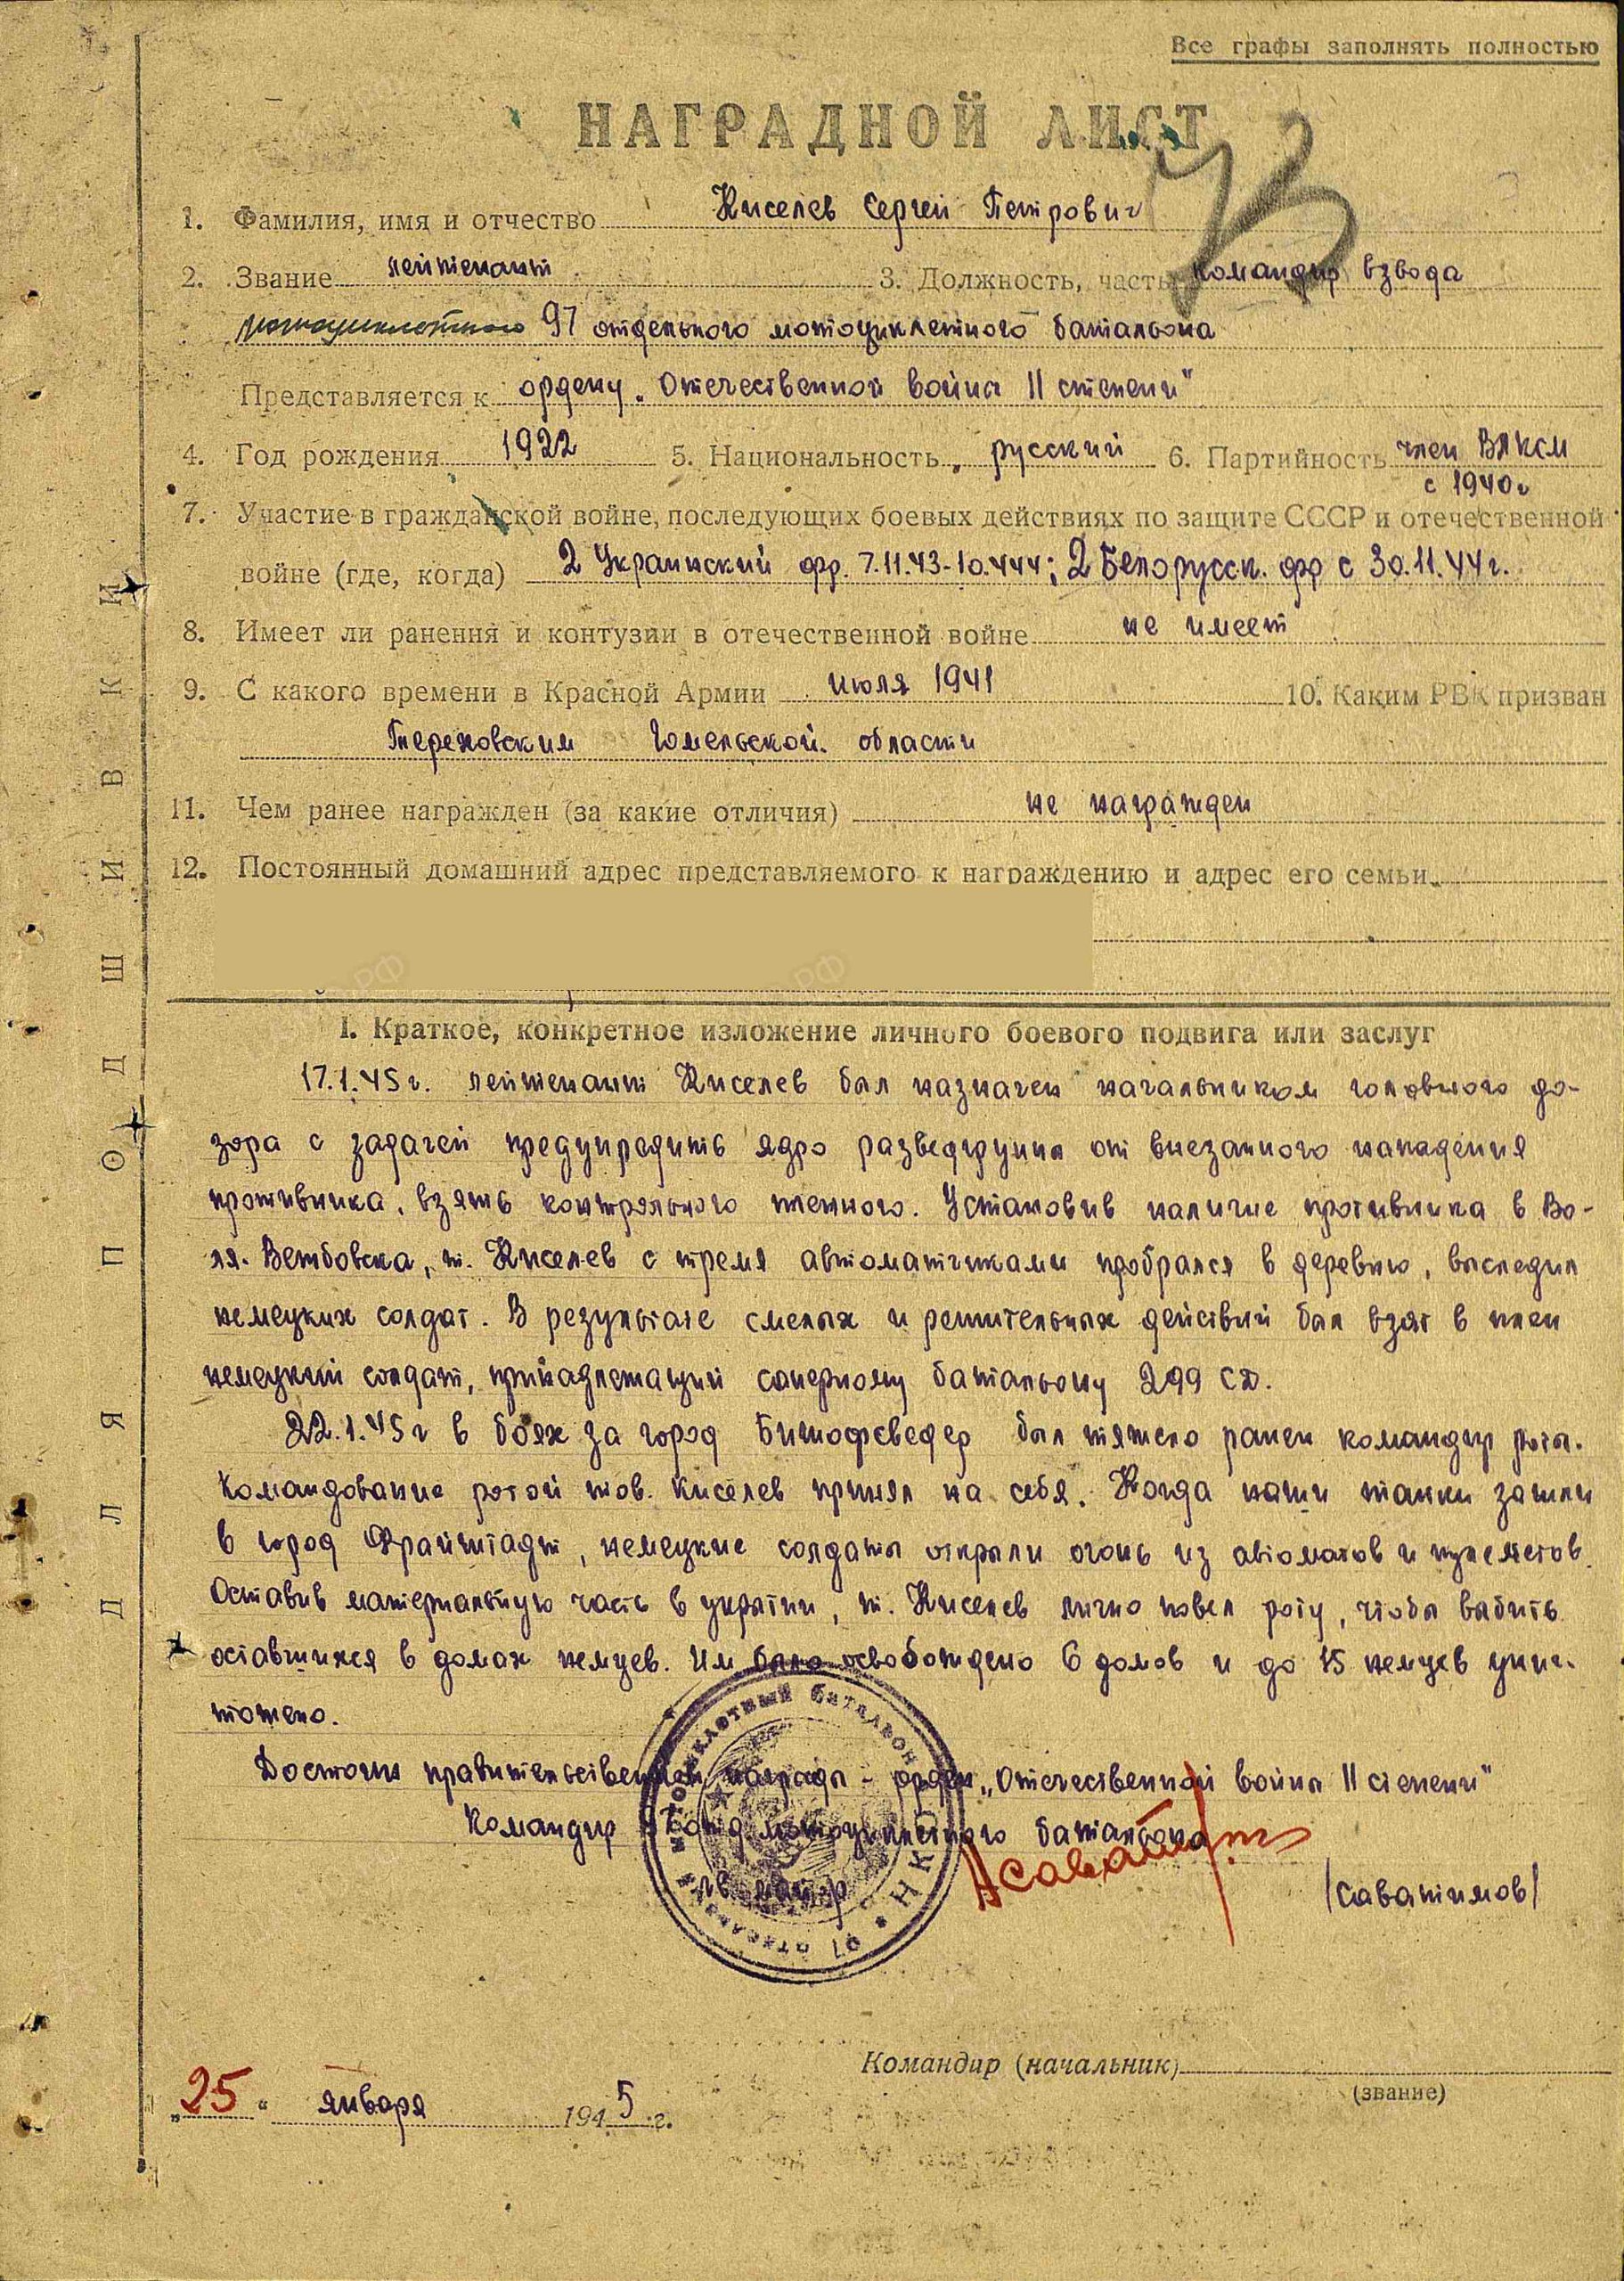 Все графы заполнять полностью
НАГРАДНОЙ ЛИСТ
1. Фамилия, имя и отчество Киселев Сергей Петрович
2. Звание лейтенант 3. Должность, часть командир взвода
мотоциклетного 97 отдельного мотоциклетного батальона
Представляется к ордену „Отечественной война II степени"
4. Год рождения 1922 5. Национальность русский 6. Партийность член ВЛКСМ
с 1940г
7. Участие в гражданской войне, последующих боевых действиях по защите СССР и отечественной
войне (где, когда) 2 Украинский фр. 7.11.43-10.4.44; 2 Белорусск. фр с 30.11.44г.
8. Имеет ли ранения и контузии в отечественной войне не имеет
9. С какого времени в Красной Армии июля 1941 10. Каким РВК призван
Тереховским Гомельской области
11. Чем ранее награжден (за какие отличия) не награжден
12. Постоянный домашний адрес представляемого к награждению и адрес его семьи
I. Краткое, конкретное изложение личного боевого подвига или заслуг
17.1.45г. лейтенант Киселев был назначен начальником головного до-
зора с задачей предупредить ядро разведгруппы от внезапного нападения
противника, взять контрольного пленного. Установив наличие противника в Во-
ля. Вембовска, т. Киселев с тремя автоматчиками пробрался в деревню, выследил
немецких солдат. В результате смелых и решительных действий был взят в плен
немецкий солдат, принадлежащий саперному батальону 299 СД.
22.1.45г в боях за город Бишофсведер был тяжело ранен командир роты.
Командование ротой тов. Киселев принял на себя. Когда наши танки зашли
в город Фрайштадт, немецкие солдаты открыли огонь из автоматов и пулеметов.
Оставив материальную часть в укрытии, т. Киселев лично повел роту, чтобы выбить
оставшихся в домах немцев. Им было освобождено 6 домов и до 15 немцев унич-
тожено.
Достоин правительственной награды - орден „Отечественной война II степени"
Командир 97 отд. мотоциклетного батальона
гв. майор
/Саватимов/
97 ОТДЕЛЬНЫЙ МОТОЦИКЛЕТНЫЙ БАТАЛЬОН НКО
Командир (начальник)
(звание)
„25" января 1945 г.
ДЛЯ ПОДШИВКИ